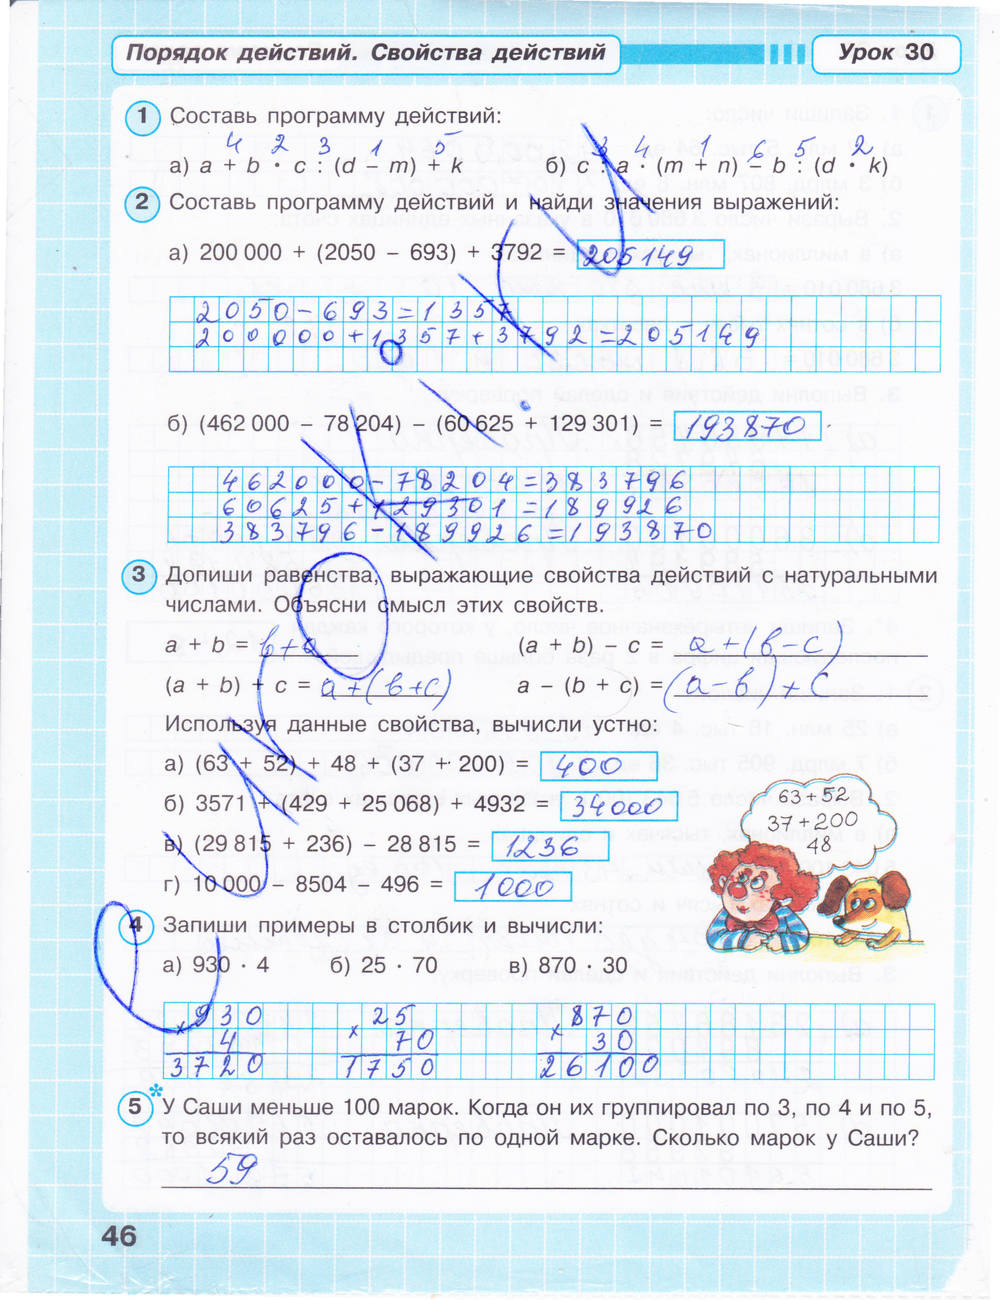 Порядок действий. Свойства действий
Урок 30
1 Составь программу действий:
4 2 3 1 5
3 4 1 6 5 2
а) a + b · c : (d – m) + k
б) c : a · (m + n) – b : (d · k)
2 Составь программу действий и найди значения выражений:
а) 200 000 + (2050 – 693) + 3792 = 205149
2050-693=1357
200000+1357+3792=205149
б) (462 000 – 78 204) – (60 625 + 129 301) = 193870
462000-78204=383796
60625+129301=189926
383796-189926=193870
3 Допиши равенства, выражающие свойства действий с натуральными
числами. Объясни смысл этих свойств.
a + b = b+a
(a + b) – c = a+(b-c)
(a + b) + c = a+(b+c)
a – (b + c) = (a-b)+c
Используя данные свойства, вычисли устно:
а) (63 + 52) + 48 + (37 + 200) = 400
б) 3571 + (429 + 25 068) + 4932 = 34000
в) (29 815 + 236) – 28 815 = 1236
г) 10 000 – 8504 – 496 = 1000
63+52
37+200
48
4 Запиши примеры в столбик и вычисли:
а) 930 · 4
б) 25 · 70
в) 870 · 30
930 25 870
× 4 × 70 × 30
3720 1750 26100
5* У Саши меньше 100 марок. Когда он их группировал по 3, по 4 и по 5,
то всякий раз оставалось по одной марке. Сколько марок у Саши?
59
46